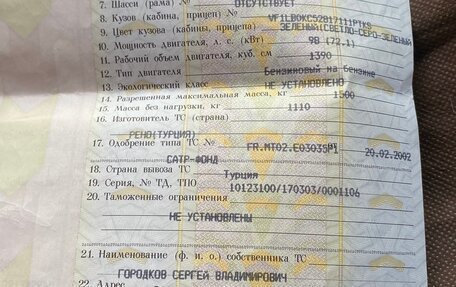 7. Шасси (рама) № ОТСУТСТВУЕТ
8. Кузов (кабина, прицеп) №
9. Цвет кузова (кабины, прицепа) ЗЕЛЕНЫЙ(СВЕТЛО-СЕРО-ЗЕЛЕНЫЙ
10. Мощность двигателя, л. с. (кВт) 98 (72.1)
11. Рабочий объем двигателя, куб. см 1390
12. Тип двигателя Бензиновый на бензине
13. Экологический класс НЕ УСТАНОВЛЕНО
14. Разрешенная максимальная масса, кг 1500
15. Масса без нагрузки, кг 1110
16. Изготовитель ТС (страна)
РЕНО(ТУРЦИЯ)
17. Одобрение типа ТС № FR.MT02.E03035P1 20.02.2002
САТР-ФОНД
18. Страна вывоза ТС Турция
19. Серия, № ТД, ТПО 10123100/170303/0001106
20. Таможенные ограничения
НЕ УСТАНОВЛЕНЫ
21. Наименование (ф. и. о.) собственника ТС
ГОРОДКОВ СЕРГЕЙ ВЛАДИМИРОВИЧ
22. Адрес